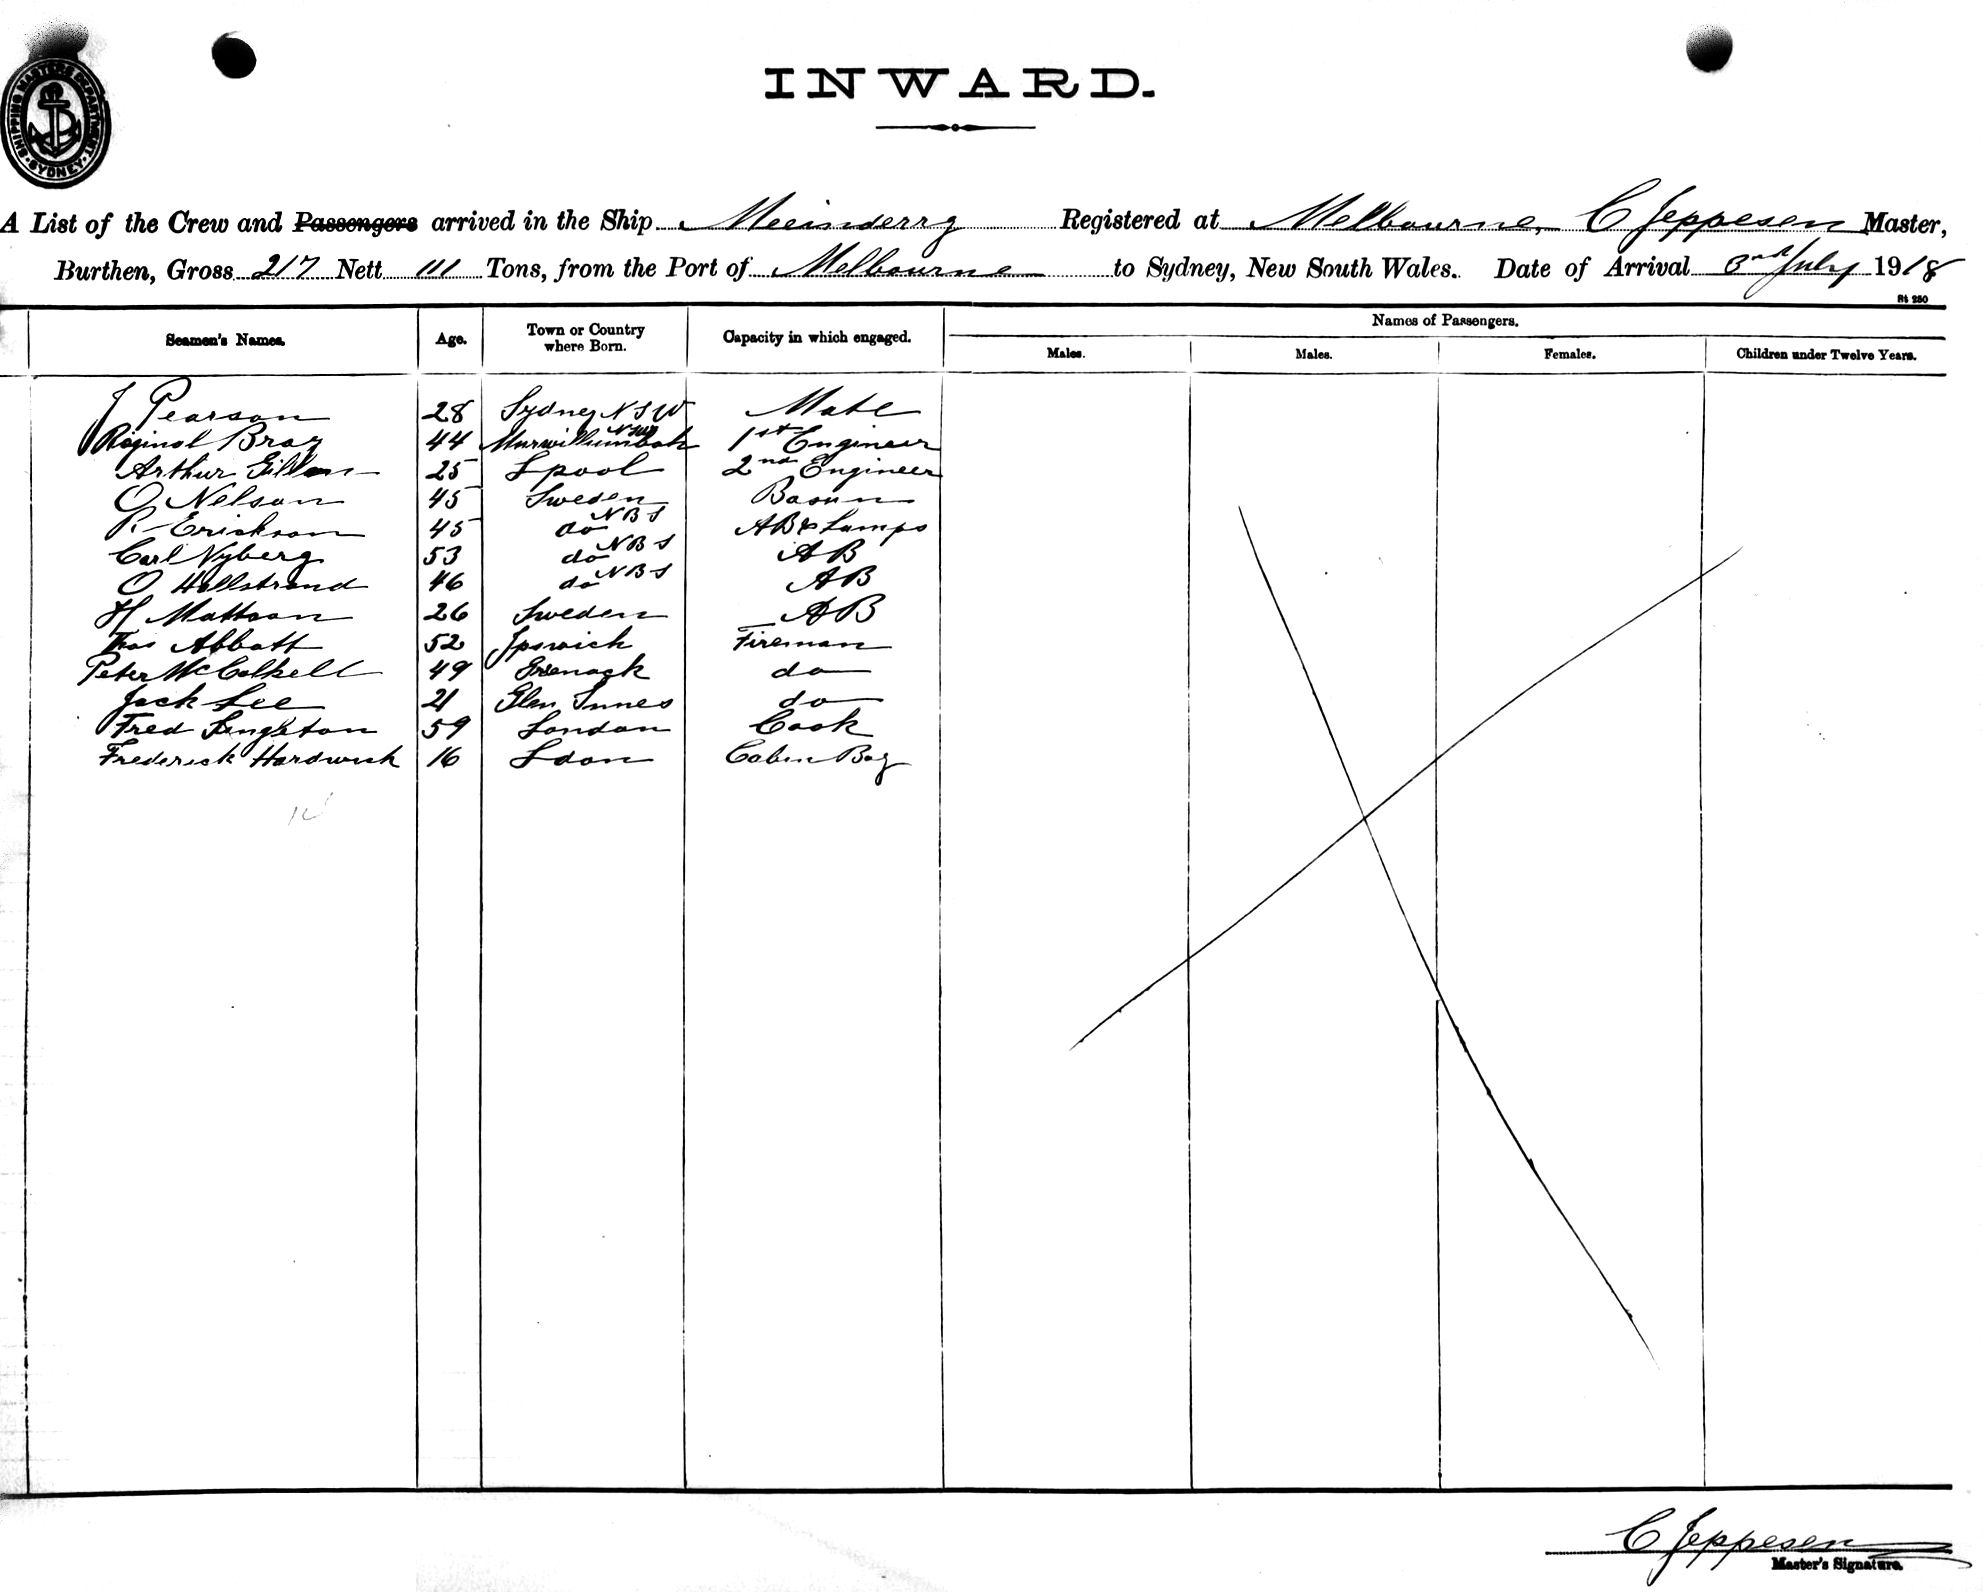 SHIPPING MASTERS DEPARTMENT. SYDNEY.
INWARD.
A List of the Crew and Passengers arrived in the Ship Meeinderry Registered at Melbourne, C Jeppesen Master,
Burthen, Gross 217 Nett 111 Tons, from the Port of Melbourne to Sydney, New South Wales. Date of Arrival 3rd July 1918
St 280
Seamen's Names. Age. Town or Country where Born. Capacity in which engaged. Names of Passengers.
Males. Males. Females. Children under Twelve Years.
J Pearson 28 Sydney NSW Mate
Reginal Bray 44 Murwillumbah NSW 1st Engineer
Arthur 25 Lpool 2nd Engineer
O Nelson 45 Sweden Bosun
R Erickson 45 do NBS AB & Lamps
Carl Nyberg 53 do NBS AB
O Hallstrand 46 do NBS AB
H Mattson 26 Sweden AB
Thos Abbott 52 Ipswich Fireman
Peter McCalkell 49 Greenock do
Jack Lee 21 Glen Innes do
Fred Singleton 59 London Cook
Frederick Hardwick 16 Ldon Cabin Boy
C Jeppesen
Master's Signature.